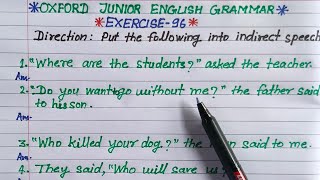 *OXFORD JUNIOR ENGLISH GRAMMAR*
*EXERCISE-96*
Direction: Put the following into indirect speech
1. "Where are the students?" asked the teacher.
Ans-
2. "Do you want go without me?" the father said
Ans-
to his son.
3. "Who killed your dog?" the said to me.
Ans-
4. They said, "Who will save us
Ans-